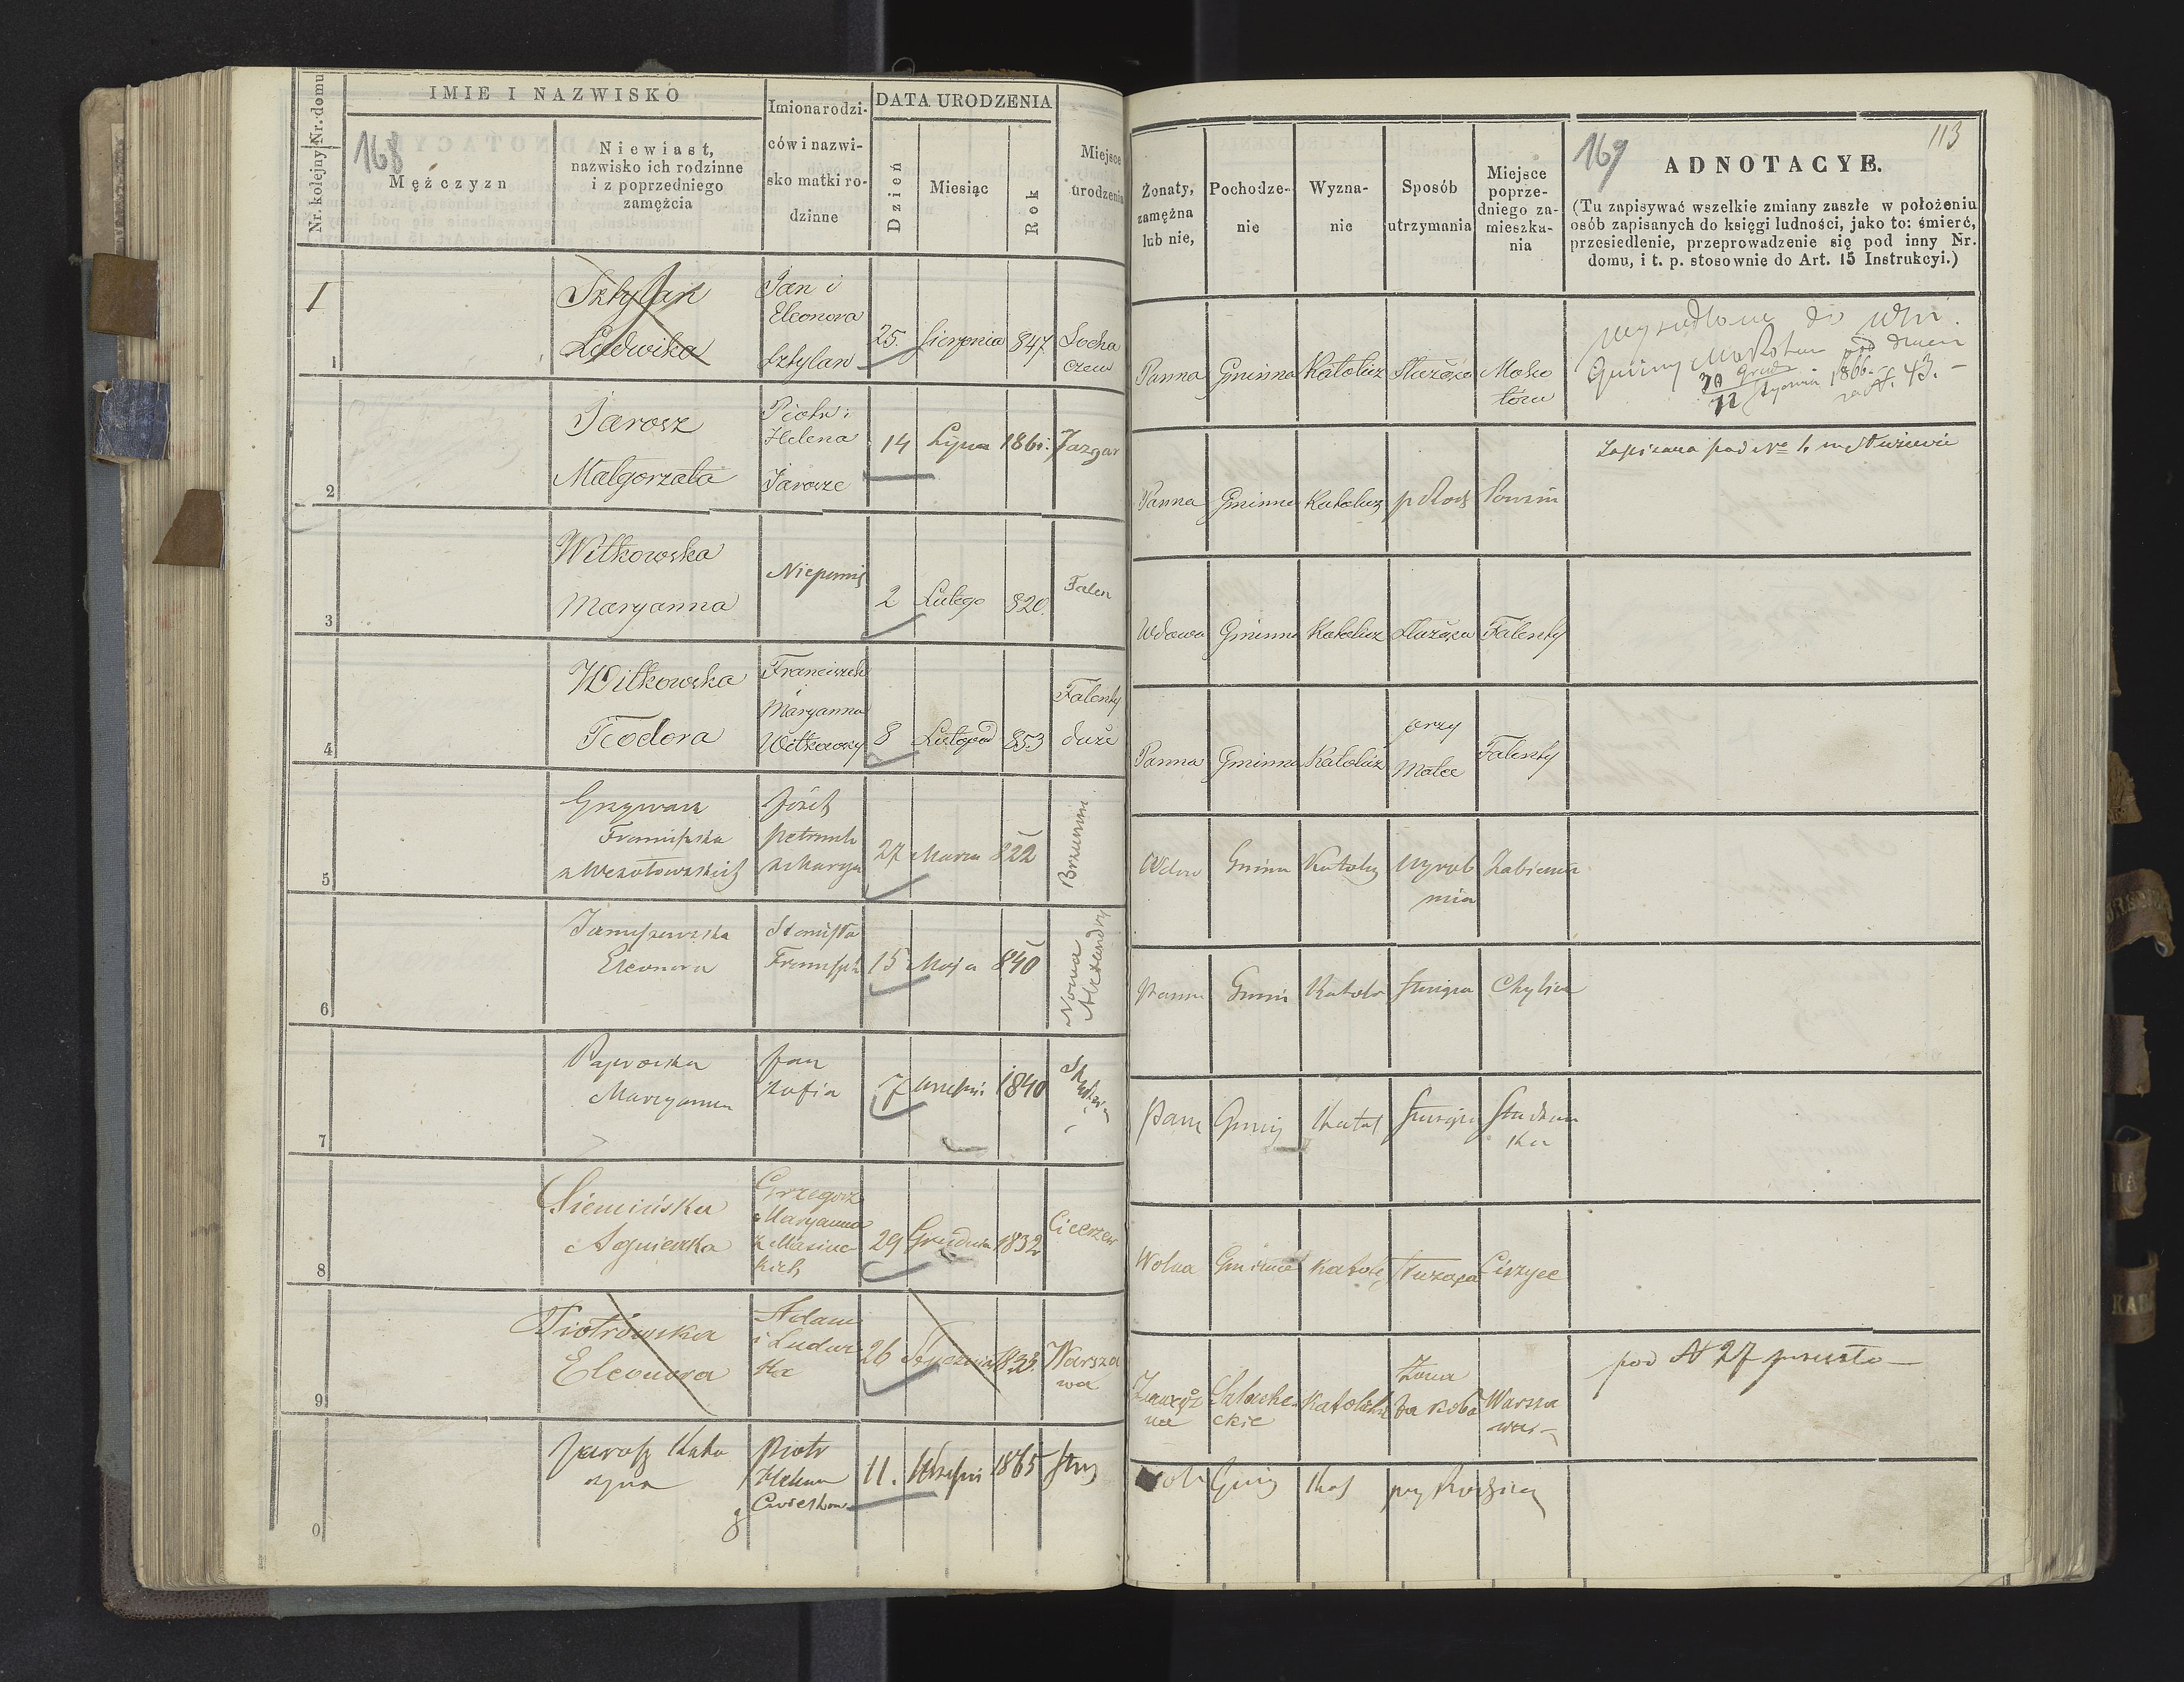 Nr. kolejny Nr. domu
IMIE I NAZWISKO
168
Mężczyzn
Niewiast,
nazwisko ich rodzinne
i z poprzedniego
zamężcia
Imiona rodzi-
ców i nazwi-
sko matki ro-
dzinne
DATA URODZENIA
Dzień
Miesiąc
Rok
Miejsce
urodzenia
Żonaty,
zamężna
lub nie,
Pochodze-
nie
Wyzna-
nie
Sposób
utrzymania
Miejsce
poprze-
dniego za-
mieszka-
nia
169
113
ADNOTACYE.
(Tu zapisywać wszelkie zmiany zaszłe w położeniu
osób zapisanych do księgi ludności, jako to: śmierć,
przesiedlenie, przeprowadzenie się pod inny Nr.
domu, i t. p. stosownie do Art. 15 Instrukcyi.)
1
1
Sztylan
Ludwika
Jan i
Eleonora
Sztylan
25. Sierpnia 847
Socha
czew
Panna Gminna Katolicz Służąca
Moko
tów
Gminy Mokotow pod dniem
30 Grud
12 Stycznia 1866
N. 43.
2
Jarosz
Małgorzata
Piotr i
Helena
Jarosze
14 Lipca 1861. Jazgar
Panna Gminna Katolicz p Rodz Powsin
Zapisana pod No 1.
3
Witkowska
Maryanna
2 Lutego 820.
Falen
Wdowa Gminna Katolicz Służąca Falenty
4
Witkowska
Teodora
Franciszek
i
Maryanna
Witkowscy
8 Listopad 853
Falenty
duże
Panna Gminna Katolicz
przy
Matce
Falenty
5
Franciszka
z Wesołowskich
Józef
27 Marca 822
Wdow Gminn Katolicz
Wyrob
nia
6
Januszewska
Eleonora
Stanisła
Francisz
15 Maja 840
Nowa
Alexandry
Panna Gmin Katol Służąca Chylice
7
Paprocka
Maryanna
Jan
Zofia
7 Wrześni 1840
Pann Katol
8
Siemińska
Agnieszka
Grzegorz
Maryanna
z Masinc-
kich
29 Grudnia 1832
Wolna Gminne Katolic Służąca Ciszyce
9
Piotrówska
Eleonora
Adam
i Ludwi-
ka
26 Stycznia 1833.
Warsza
wa
Zamęż
na
Szlache-
ckie
Katolickie
Żona
Warsza
wa
pod N 27
0
Jarosz Kata
rzyna
Piotr
Helena
z
11. Wrześni 1865
Kat przy Rodzicach